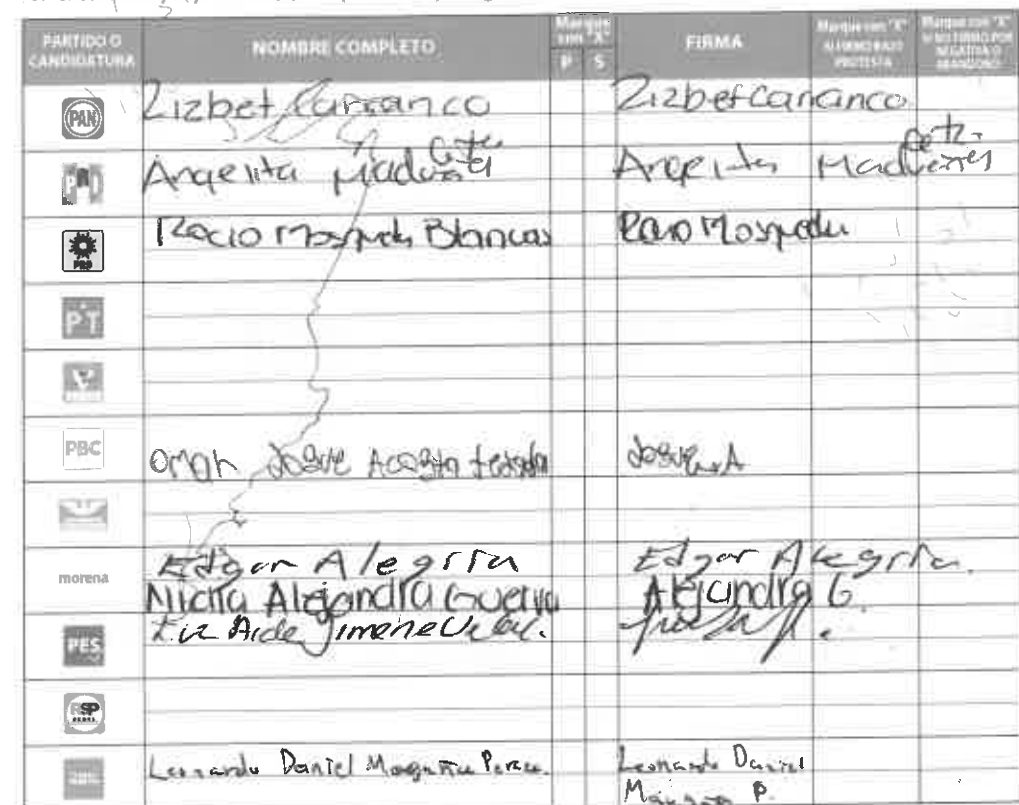 PARTIDO O CANDIDATURA NOMBRE COMPLETO Marque con "X" P S FIRMA Marque con "X" SI FIRMÓ BAJO PROTESTA Marque con "X" SI NO FIRMÓ POR NEGATIVA O ABANDONO
PAN Lizbet Carranco Lizbet Carranco
PRI Angelita Angelita
PRD Rocio Mosqueda Blancas Rocio Mosqueda
PT
VERDE
PBC Omar Josue Acosta Josue A
morena Edgar Alegria Edgar Alegria.
Alejandra Guerra Alejandra G.
PES Liz Aide Jimenez
RSP
Leonardo Daniel Magaña Leonardo Daniel
Magaña P.